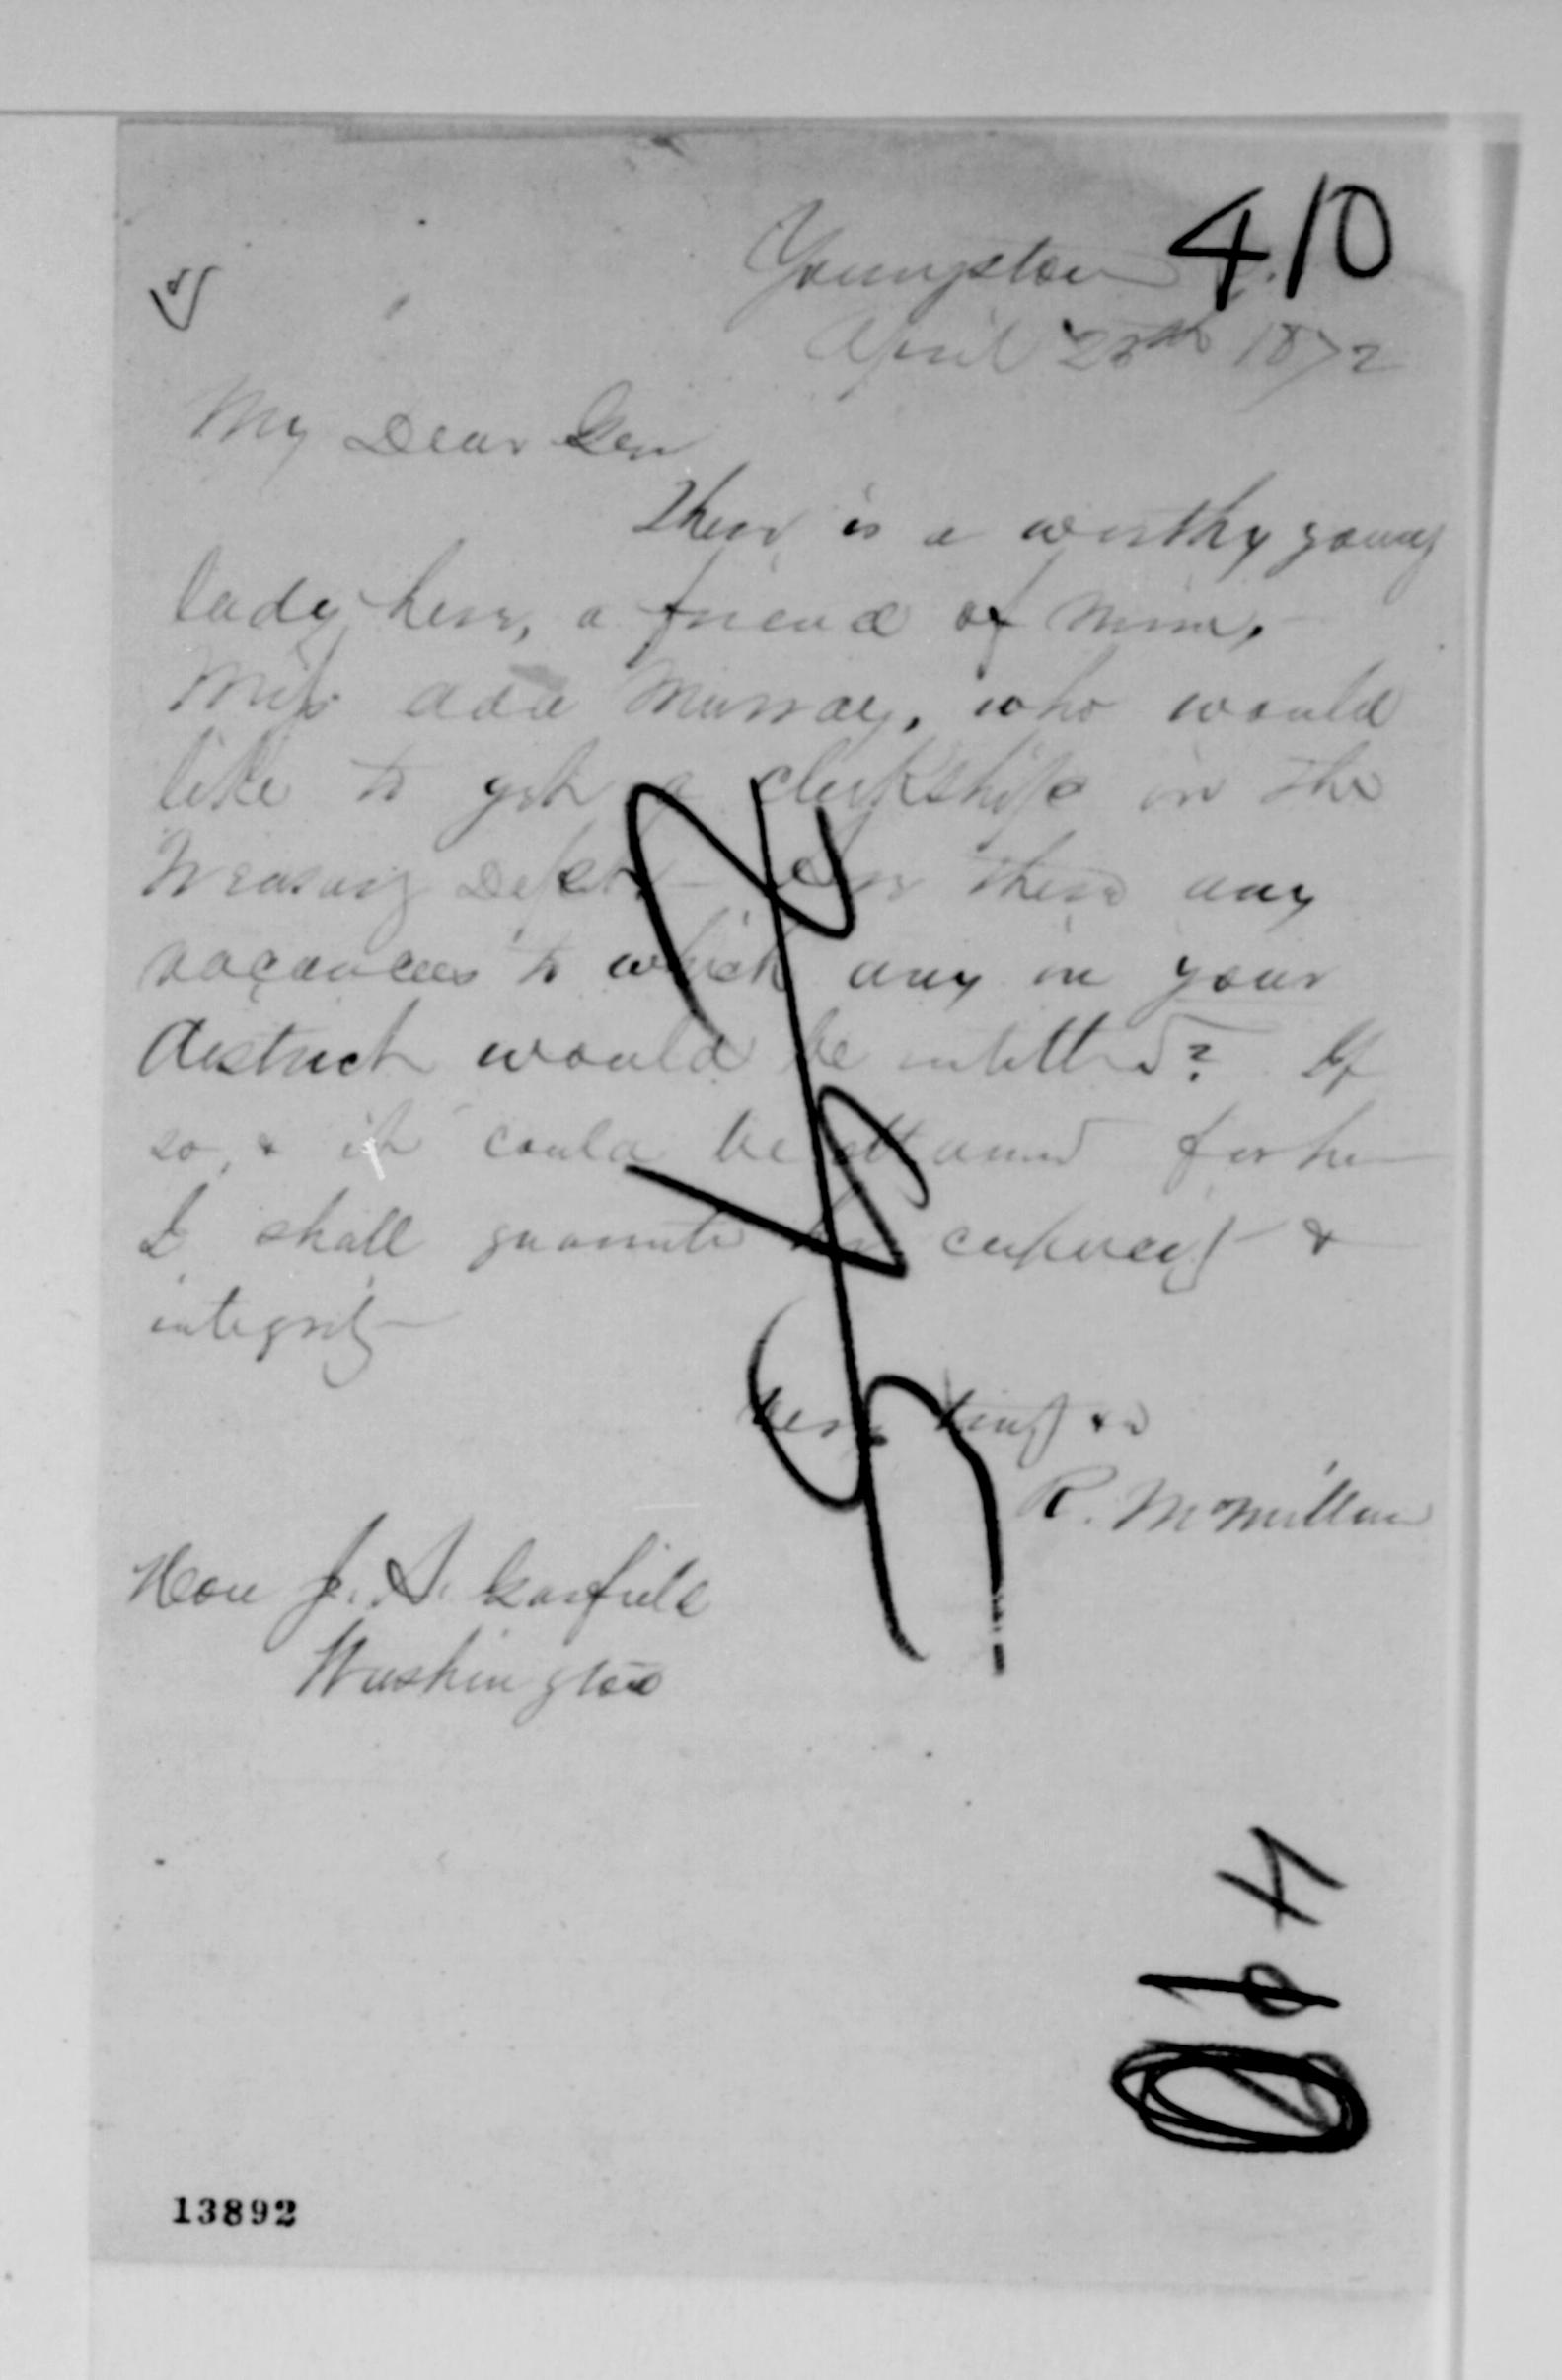 410
Youngstown O.
April 25th 1872
My Dear Gen
There is a worthy young
lady here, a friend of mine,
Miss Ada Murray, who would
like to get a clerkship in the
Treasury Dept - Are there any
vacancies to which any in your
district would be intitled? If
so, & it could be attained for her
I shall guarantee her capacity &
integrity
Very truly &c
R. McMillan
Hon J. A. Garfield
Washington
13892